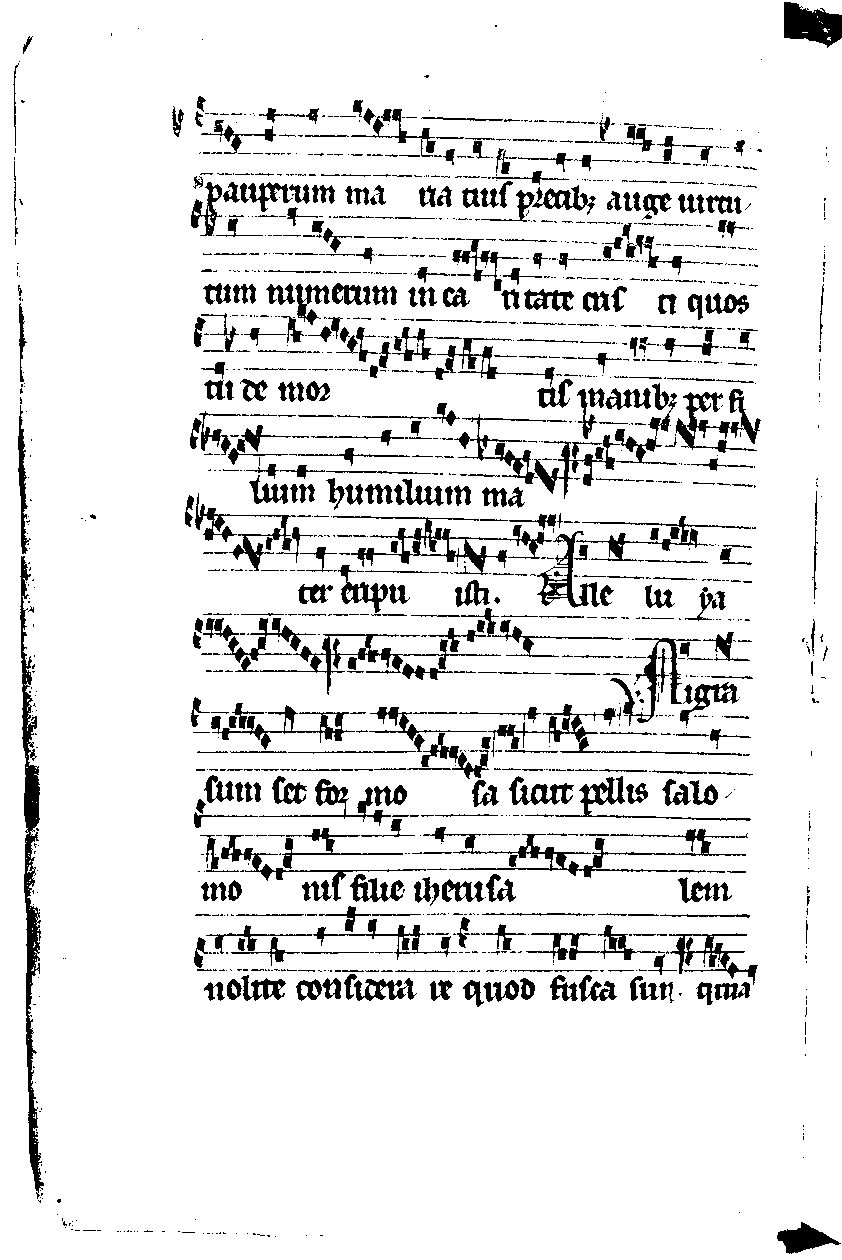 pauperum ma ria tuis precib; auge uirtu
tum numerum in ca ritate cris ti quos
tu de mor tis manib; per fi
lium humilium ma
ter eripu isti. Alle lu ya
Nigra
sum set for mo sa sicut pellis salo
mo nis filie iherusa lem
nolite considera re quod fusca sun quia